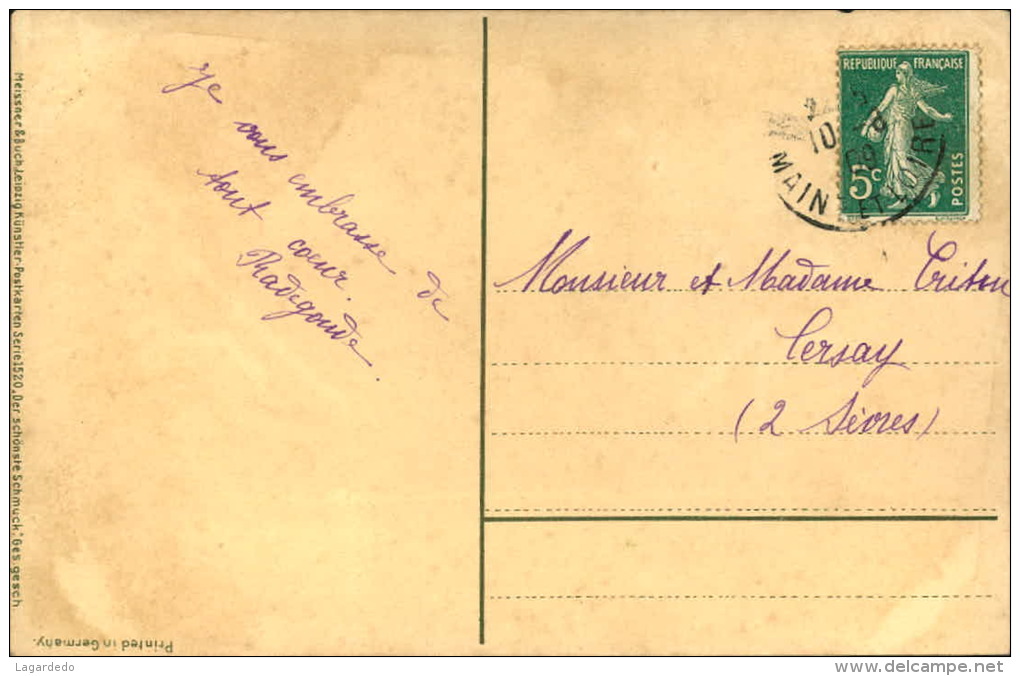 Je
vous embrasse de
tout coeur.
Radegonde.
Monsieur et Madame
Cersay
(2 Sèvres)
REPUBLIQUE FRANÇAISE
5c
POSTES
10
MAINE ET LOIRE
Meissner & Buch, Leipzig Künstler-Postkarten Serie 1520 „Der schönste Schmuck“. Ges. gesch.
Printed in Germany.
Lagardedo
www.delcampe.net